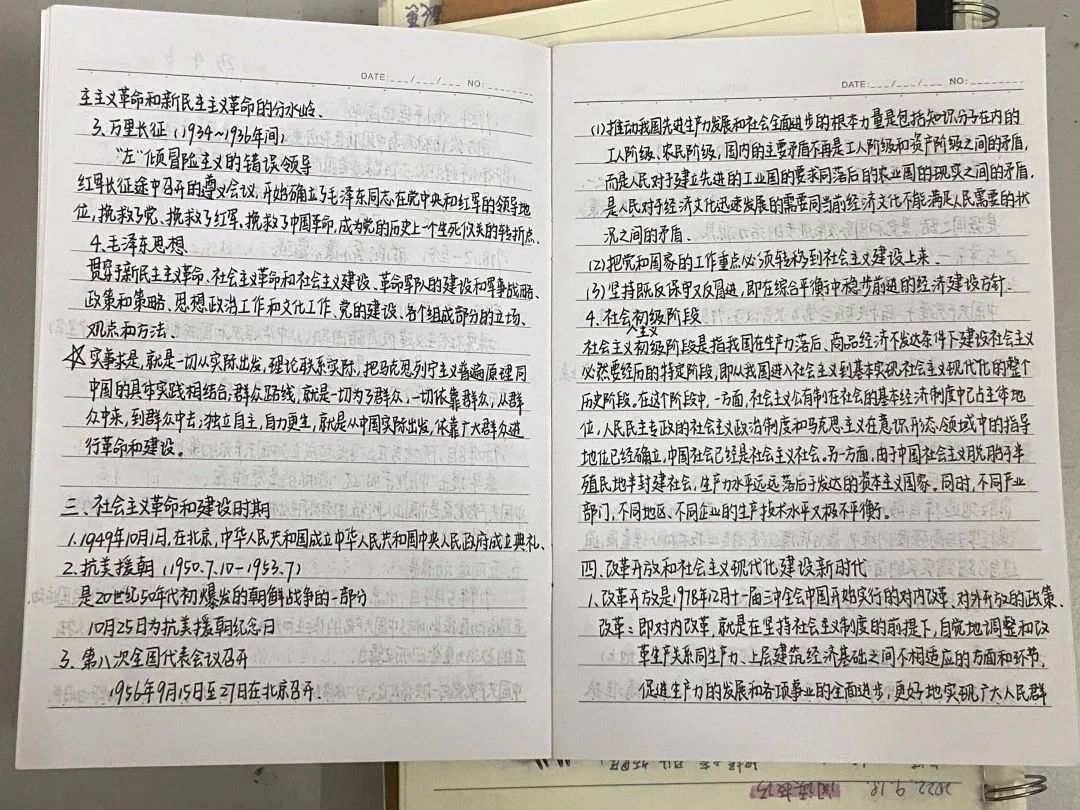 DATE:___/___/___ NO:
主主义革命和新民主主义革命的分水岭.
3. 万里长征 (1934~1936年间)
"左"倾冒险主义的错误领导
红军长征途中召开的遵义会议,开始确立了毛泽东同志在党中央和红军的领导地
位,挽救了党、挽救了红军,挽救了中国革命,成为党的历史上一个生死攸关的转折点.
4.毛泽东思想.
贯穿于新民主主义革命、社会主义革命和社会主义建设、革命军队的建设和军事战略、
政策和策略、思想政治工作和文化工作、党的建设、各个组成部分的立场、
观点和方法.
☆实事求是,就是一切从实际出发,理论联系实际,把马克思列宁主义普遍原理同
中国的具体实践相结合;群众路线,就是一切为了群众,一切依靠群众,从群
众中来,到群众中去;独立自主,自力更生,就是从中国实际出发,依靠广大群众进
行革命和建设。
三、社会主义革命和建设时期
1.1949年10月1日,在北京,中华人民共和国成立中华人民共和国中央人民政府成立典礼.
2.抗美援朝 (1950.7.10-1953.7)
是20世纪50年代初爆发的朝鲜战争的一部分
10月25日为抗美援朝纪念日
3. 第八次全国代表会议召开
1956年9月15日至27日在北京召开
DATE:___/___/___ NO:
(1)推动我国先进生产力发展和社会全面进步的根本力量是包括知识分子在内的
工人阶级、农民阶级,国内的主要矛盾不再是工人阶级和资产阶级之间的矛盾,
而是人民对于建立先进的工业国的要求同落后的农业国的现实之间的矛盾,
是人民对于经济文化迅速发展的需要同当前经济文化不能满足人民需要的状
况之间的矛盾.
(2)把党和国家的工作重点必须转移到社会主义建设上来.
(3)坚持既反保守又反冒进,即在综合平衡中稳步前进的经济建设方针.
4. 社会主义初级阶段
社会主义初级阶段是指我国在生产力落后、商品经济不发达条件下建设社会主义
必然要经历的特定阶段,即从我国进入社会主义到基本实现社会主义现代化的整个
历史阶段。在这个阶段中,一方面,社会主义公有制在社会的基本经济制度中已占主体地
位,人民民主专政的社会主义政治制度和马克思主义在意识形态领域中的指导
地位已经确立,中国社会已经是社会主义社会。另一方面,由于中国社会主义脱胎于半
殖民地半封建社会,生产力水平远远落后于发达的资本主义国家。同时,不同产业
部门、不同地区、不同企业的生产技术水平又极不平衡。
四、改革开放和社会主义现代化建设新时代
1、改革开放是1978年12月十一届三中全会中国开始实行的对内改革、对外开放的政策.
改革:即对内改革,就是在坚持社会主义制度的前提下,自觉地调整和改
革生产关系同生产力、上层建筑、经济基础之间不相适应的方面和环节,
促进生产力的发展和各项事业的全面进步,更好地实现广大人民群
2022.9.18
阅读技巧